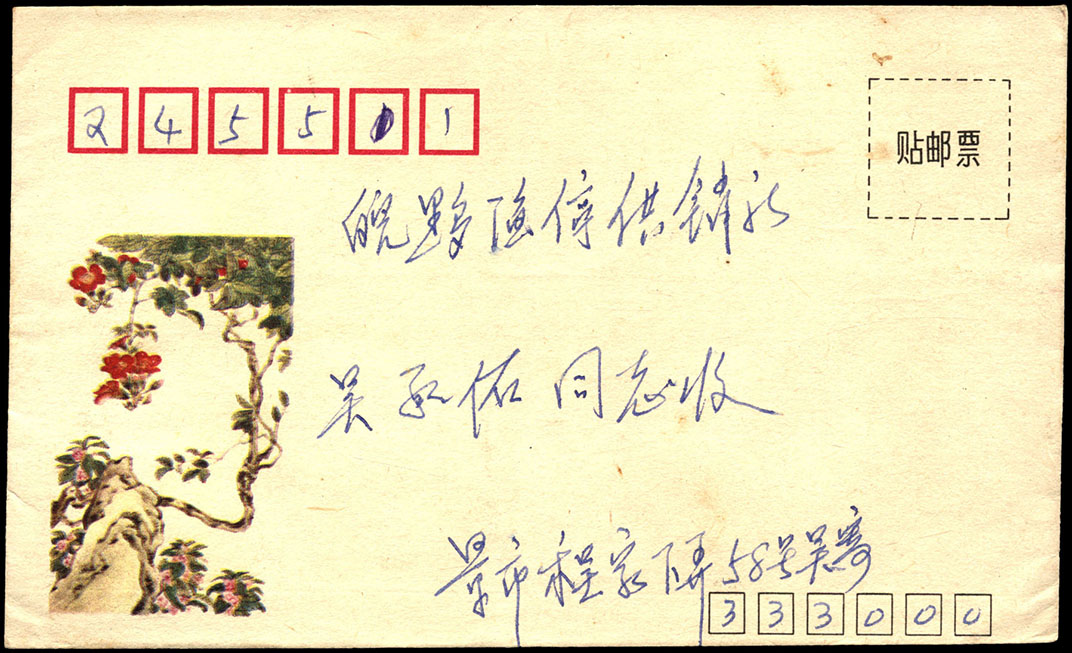 245501
贴邮票
皖黟渔停供销社
吴佑同志收
景市程家下弄58号吴寄
333000